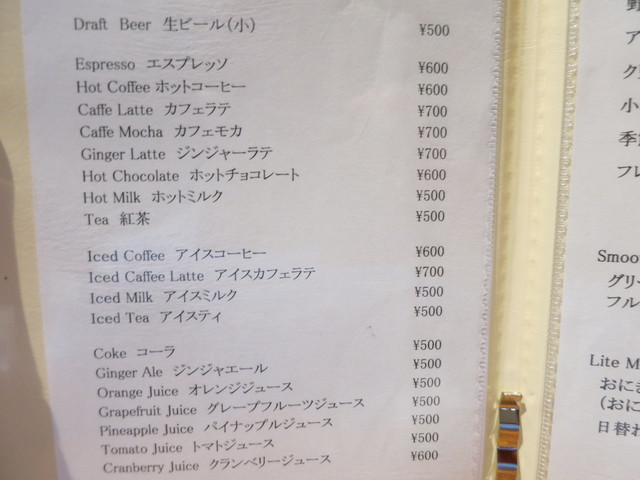 Draft Beer 生ビール(小) ¥500
Espresso エスプレッソ ¥600
Hot Coffee ホットコーヒー ¥600
Caffe Latte カフェラテ ¥700
Caffe Mocha カフェモカ ¥700
Ginger Latte ジンジャーラテ ¥700
Hot Chocolate ホットチョコレート ¥600
Hot Milk ホットミルク ¥500
Tea 紅茶 ¥500
Iced Coffee アイスコーヒー ¥600
Iced Caffee Latte アイスカフェラテ ¥700
Iced Milk アイスミルク ¥500
Iced Tea アイスティ ¥500
Coke コーラ ¥500
Ginger Ale ジンジャエール ¥500
Orange Juice オレンジジュース ¥500
Grapefruit Juice グレープフルーツジュース ¥500
Pineapple Juice パイナップルジュース ¥500
Tomato Juice トマトジュース ¥500
Cranberry Juice クランベリージュース ¥600
ア
ク
小
フレ
Smoo
グリー
フル
Lite M
おに
(おに
日替わ